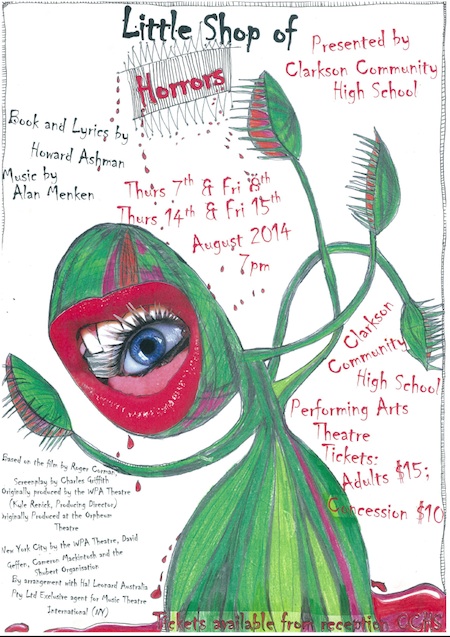 Little Shop of
Horrors
Presented by
Clarkson Community
High School
Book and Lyrics by
Howard Ashman
Music by
Alan Menken
Thurs 7th & Fri 8th
Thurs 14th & Fri 15th
August 2014
7pm
Clarkson
Community
High School
Performing Arts
Theatre
Tickets:
Adults $15;
Concession $10
Based on the film by Roger Corman,
Screenplay by Charles Griffith
Originally produced by the WPA Theatre
(Kyle Renick, Producing Director)
Originally Produced at the Orpheum
Theatre
New York City by the WPA Theatre, David
Geffen, Cameron Mackintosh and the
Shubert Organisation
By arrangement with Hal Leonard Australia
Pty Ltd Exclusive agent for Music Theatre
International (NY)
Tickets available from reception CCHS